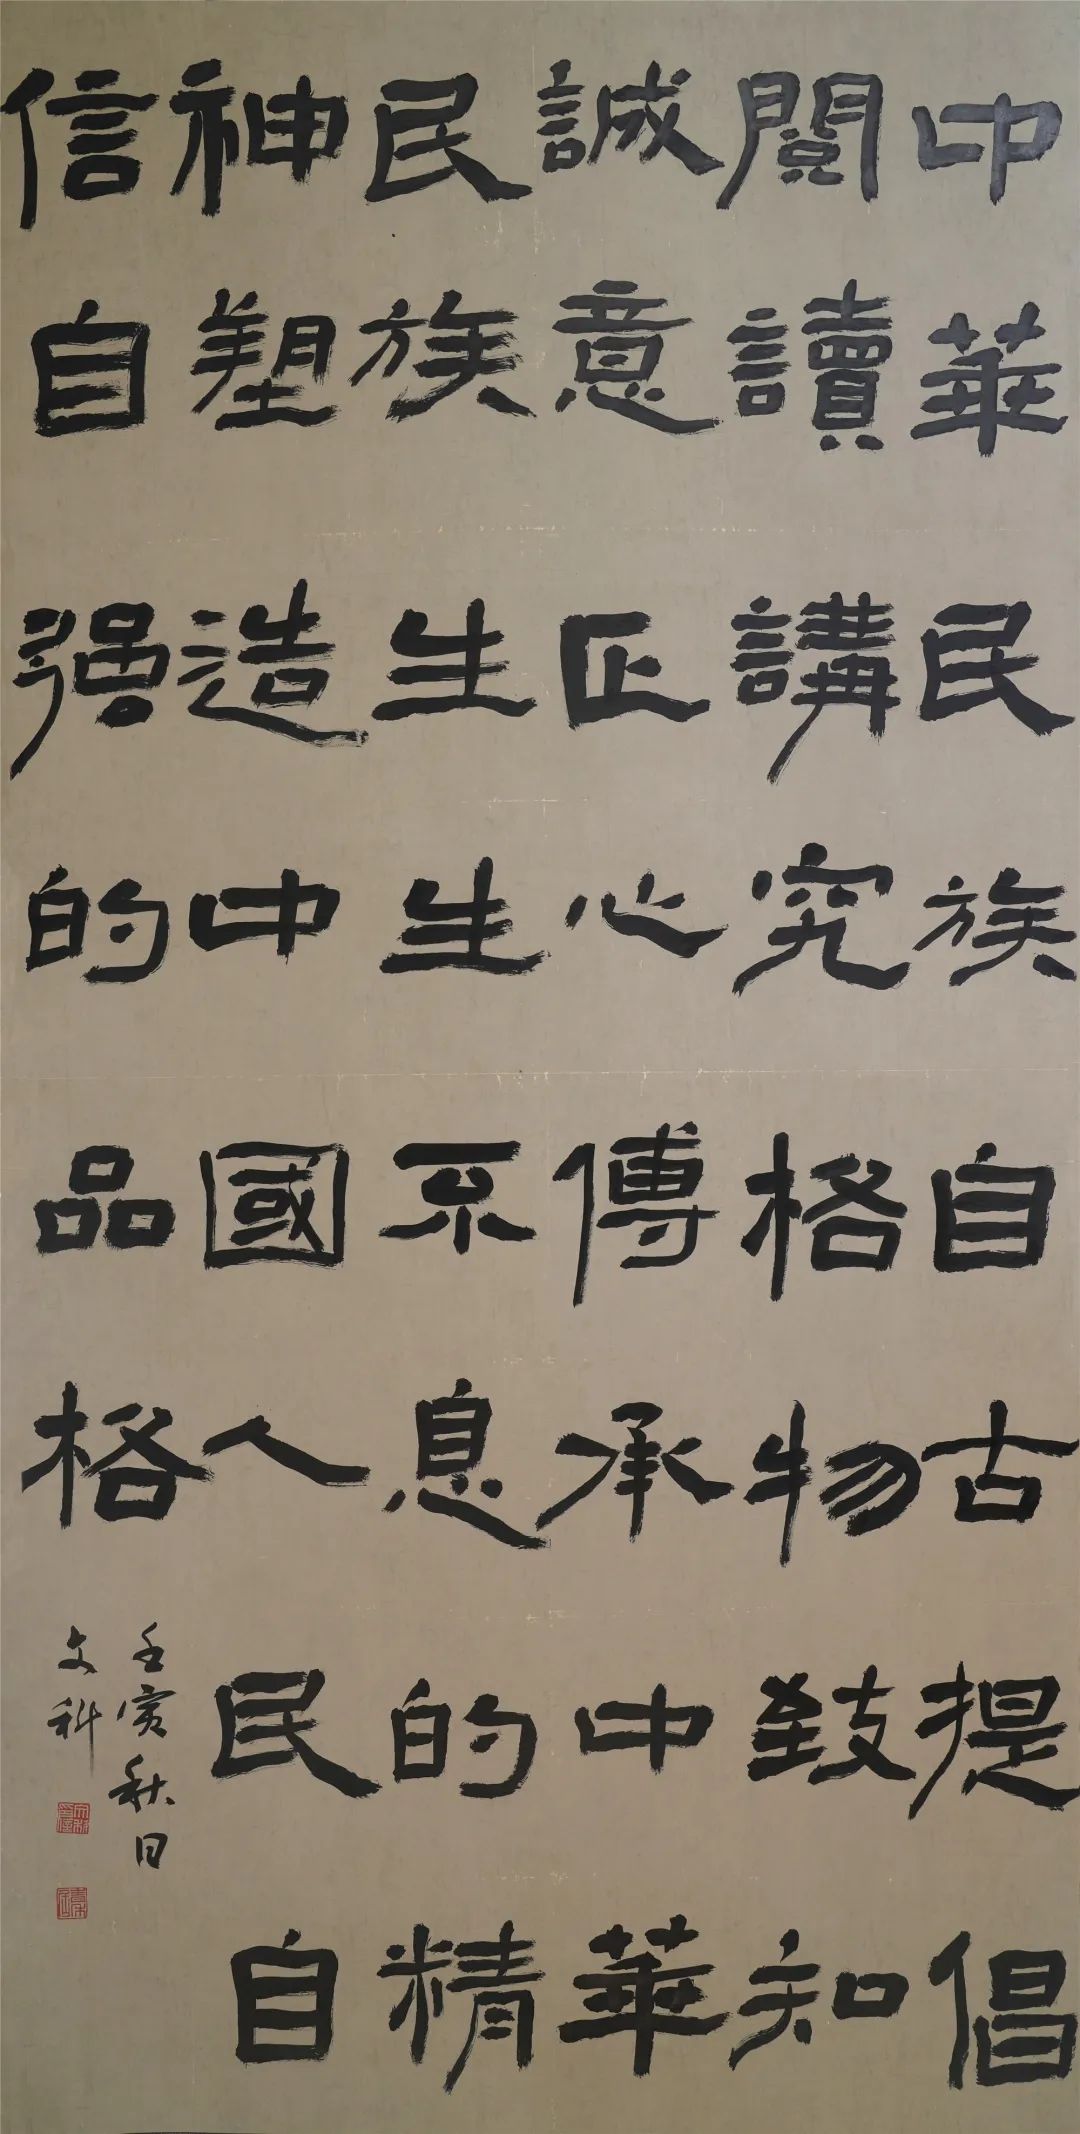 中華民族自古提倡
閱讀講究格物致知
誠意正心傳承中華
民族生生不息的精
神塑造中國人民自
信自强的品格
壬寅秋日
文科